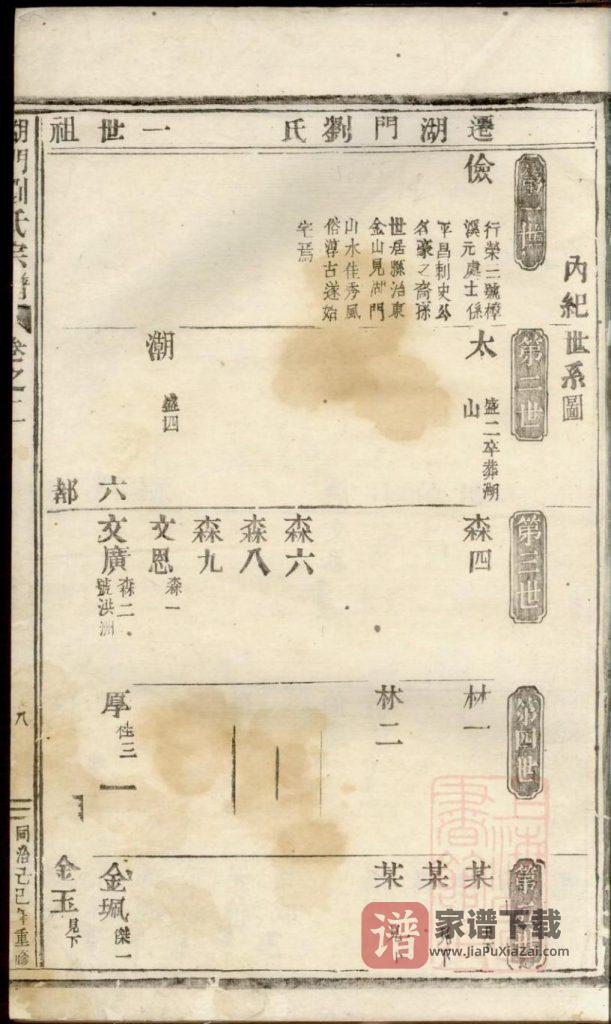 遷湖門劉氏一世祖
內紀世系圖
第一世
儉
行榮三號樟
溪元處士係
平昌刺史公
名豪之裔孫
世居縣治東
金山見湖門
山水佳秀風
俗淳古遂始
宅焉
第二世
太山
盛二卒葬湖
潮
盛四
六都
第三世
森四
森六
森八
森九
文恩
森一
文廣
森二
號洪洲
第四世
林一
林二
厚一
桂三
第
某
某
某
見下
金珮
傑一
金玉
見下
湖門劉氏宗譜
卷之二
八
同治己巳年重修
谱
家谱下载
www.JiaPuXiaZai.com